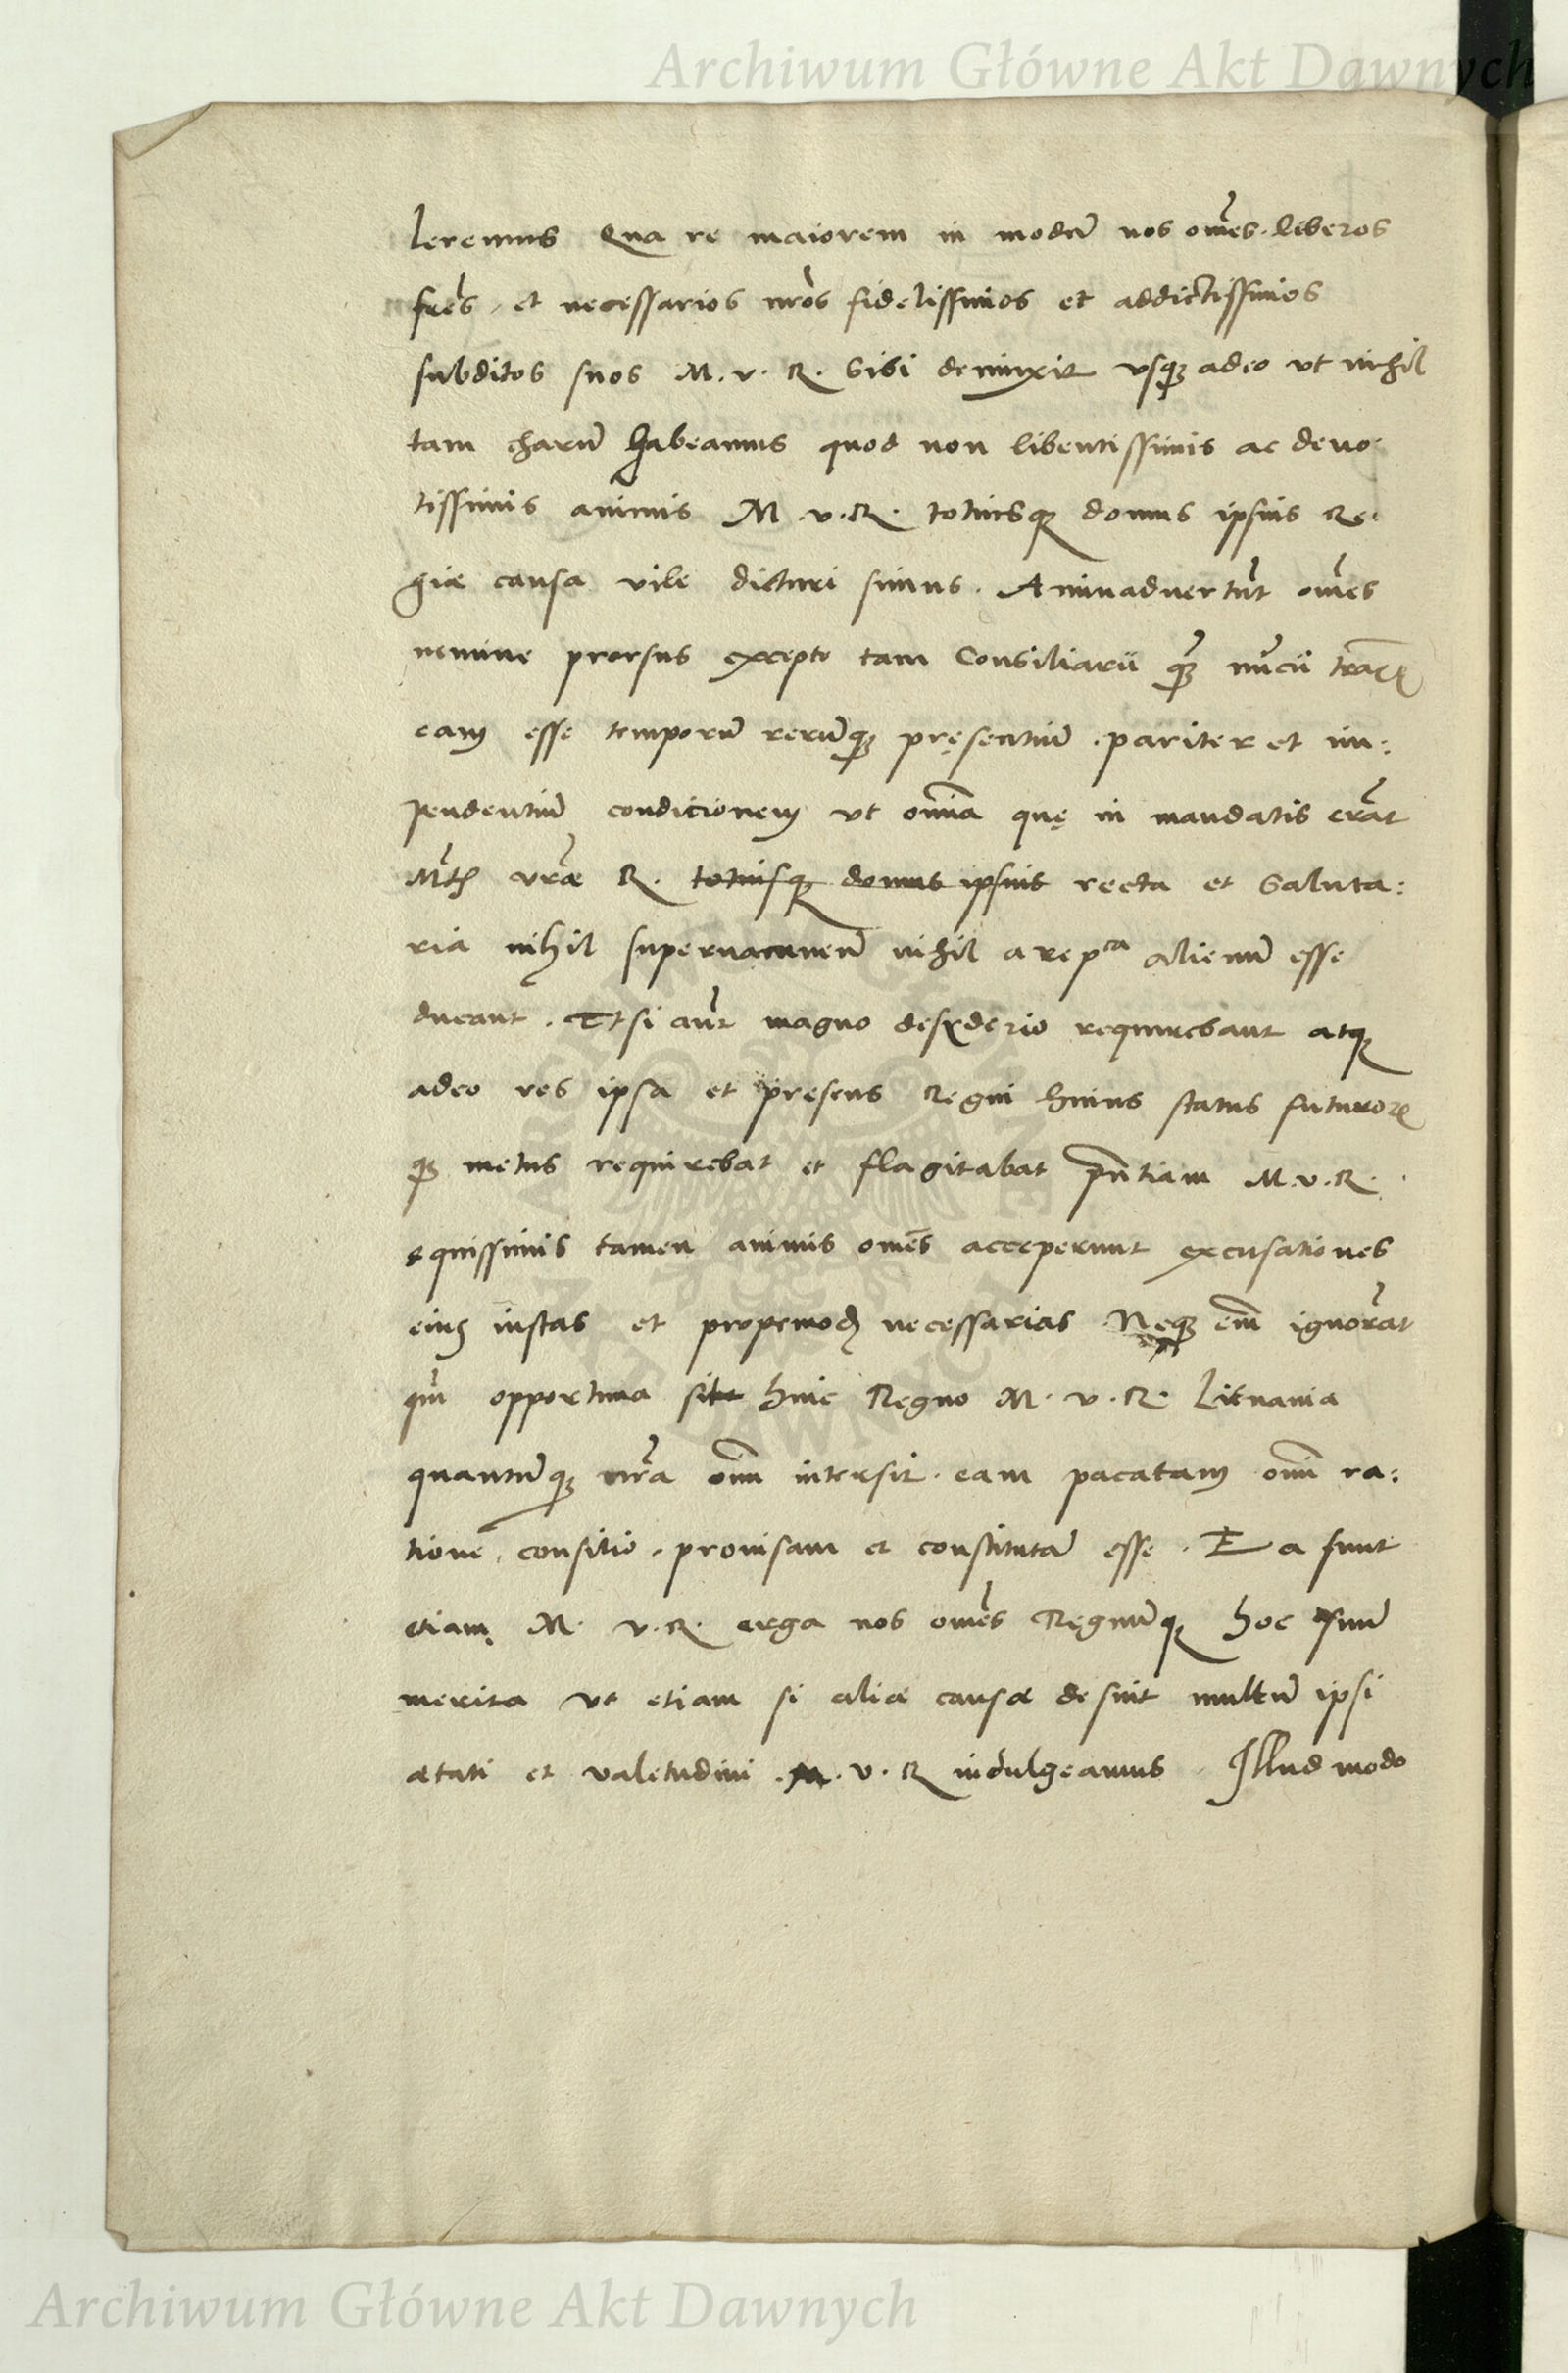 Archiwum Główne Akt Dawnych
leremus Qua re maiorem in modũ nos om̃es liberos
fres̃, et necessarios nr̃os fidelissimos et addictissimos
subditos suos M. v. R. sibi deuinxit vsq₃ adeo vt nihil
tam charũ habeamus quod non libentissimis ac deuo:
tissimis animis M. v. R. totiusq₃ domus ipsius Re:
giæ causa vile dicturi simus. Animaduertũt om̃es
nemine prorsus excepto tam Consiliarii q̃₃ nũcii
eam esse temporũ rerũq₃ pręsentiũ pariter et im:
pendentiũ condicionem vt om̃ia quę in mandatis erãt
Mt̃is vr̃æ R. totiusq₃ domus ipsius recta et saluta:
ria nihil superuacaneũ nihil a rep^ca alienũ esse
ducant. Etsi aũt magno desyderio requirebant atq₃
adeo res ipsa et presens Regni huius status futuror₂
q₃ metus requirebat et flagitabat pñtiam M. v. R.
ęquissimis tamen animis om̃es acceperunt excusationes
eius iustas et propemod₃ necessarias Neq₃ em̃ ignorãt
qm̃ opportuna sit huic Regno M. v. R. Lituania
quantũq₃ nr̃a om̃i intersit eam pacatam om̃i ra:
tione, consilio, prouisam et constitutã esse. Ea sunt
etiam M. v. R. erga nos om̃es Regnũq₃ hoc suũ
merita vt etiam si aliæ causæ desint multũ ipsi
ætati et valetudini M. v. R indulgeamus. Illud modo
Archiwum Główne Akt Dawnych